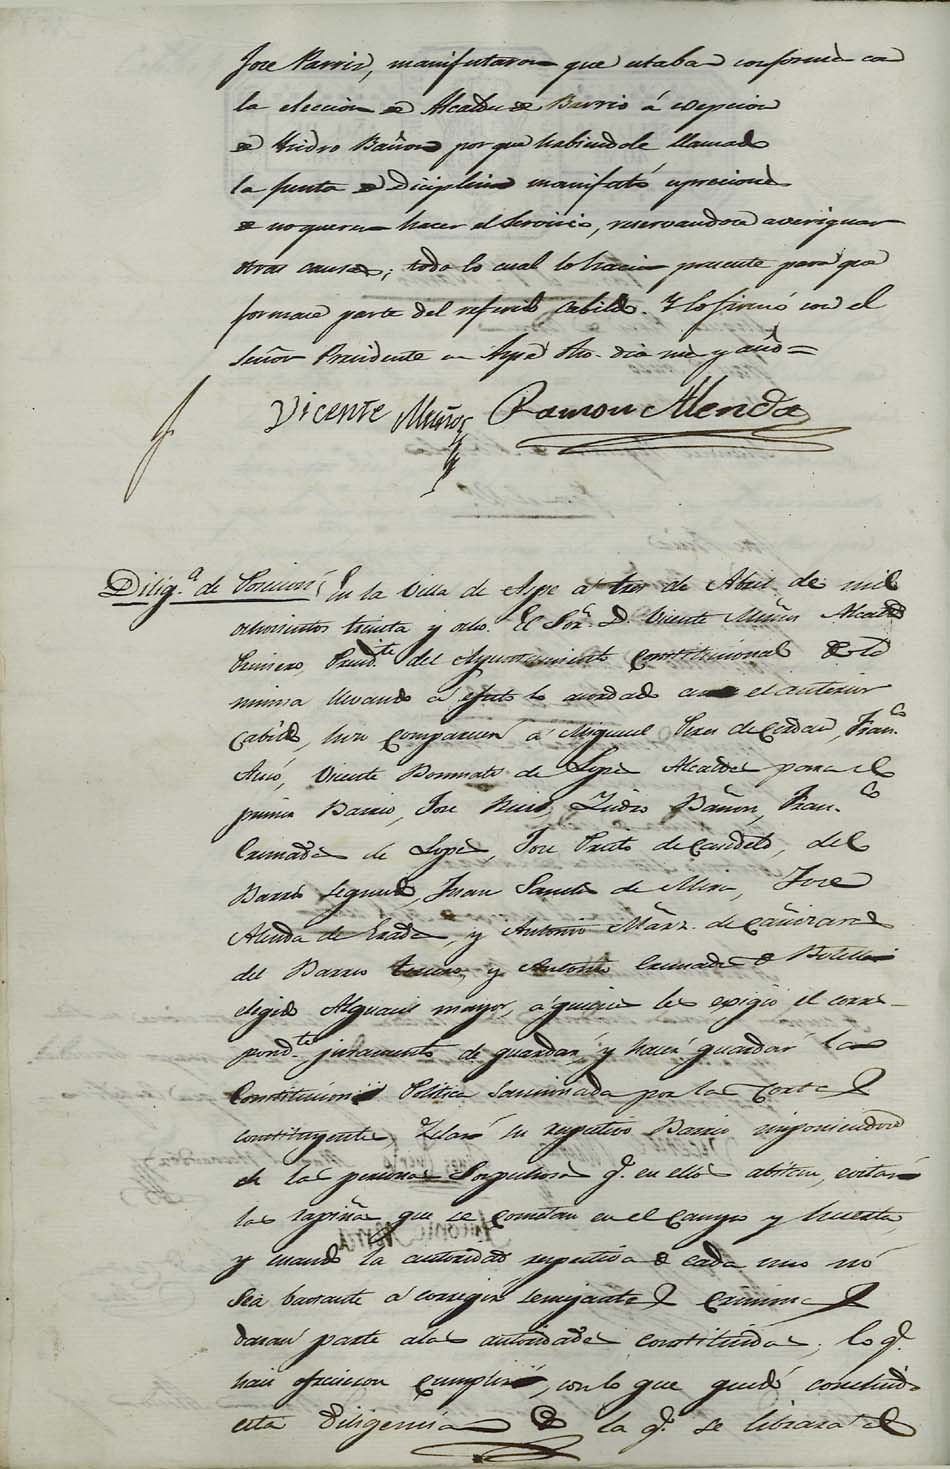 Jose Pavia, manifestaron que estaban conformes con
la eleccion de Alcaldes de Barrio á ecepcion
de Ysidro Bañon porque habiendole llamado
la Junta de Diciplina manifestó
de no querer hacer el Servicio, reservandose averiguar
otras causas; todo lo cual lo hacian presente para que
formase parte del referido Cabildo. Y lo firmó con el
Señor Presidente en Aspe dho. dia mes y año=
Vicente Muñoz Ramon Alenda
Dilig.ª de Posesion En la Villa de Aspe á tres de Abril de mil
ochocientos treinta y ocho. El Sor. D. Vicente Muñoz Alcalde
Primero, Presid.te del Ayuntamiento Constitucional de la
misma llevando á efecto lo acordado en el anterior
Cabildo, hizo comparecer á Miguel Perez de Cerdan, Fran.co
, Vicente Bonmati de Lopez Alcaldes para el
primer Barrio, Jose Rico, Ysidro Bañon, Fran.co
Cremades de Lopez, Jose Prieto de Candela, del
Barrio Segundo, Juan Sanchez de Mira, Jose
Alenda de Prades, y Antonio Mañz. de Cañizares
del Barrio tercero, y Antonio Cremades de Botella
elegido Alguacil mayor, á quienes les exigió el corres-
pond.te juramento de guardar, y hacer guardar la
Constitucion Politica sancionada por las Cortes
constituyentes, Zelar su respectivo Barrio imponiendose
de las personas Sospechosas q. en ellos abiten, evitar
las rapiñas que se cometan en el Campo y huerta,
y cuando la autoridad respectiva de cada uno no
sea bastante á corregir semejantes crimenes
daran parte a las autoridades constituidas, lo q.
han ofrecieron cumplir, con lo que quedó concluida
esta Diligencia de la q. se librara el